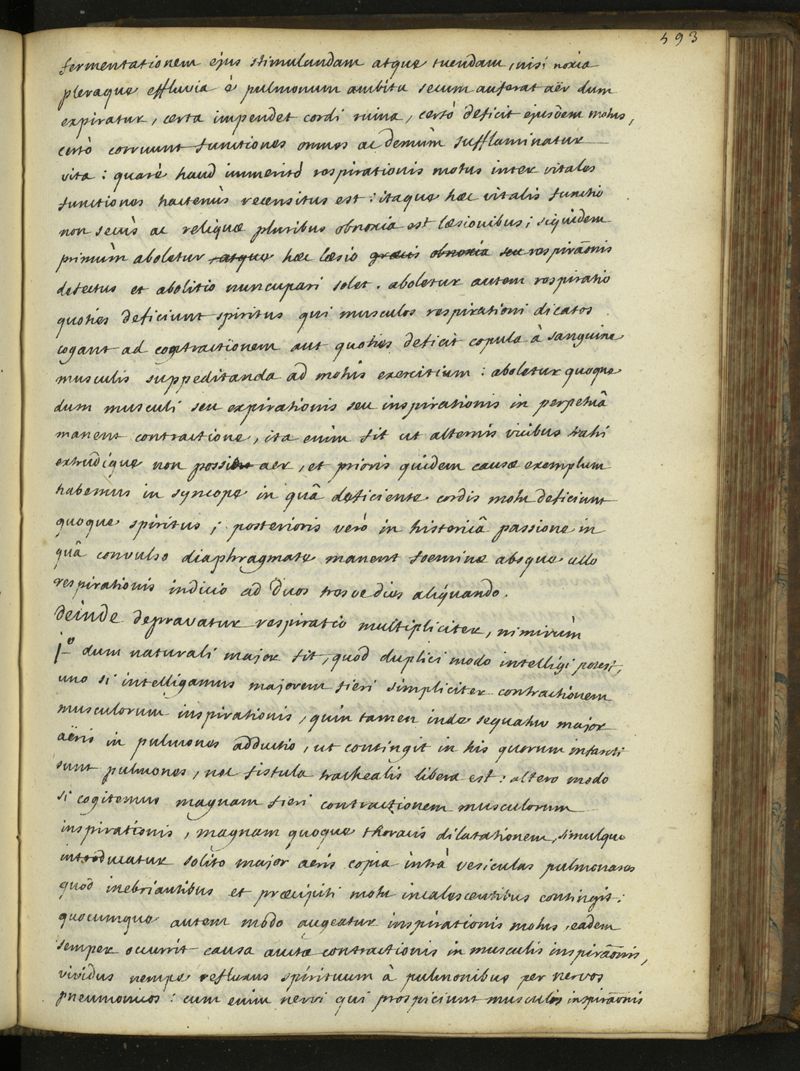 593
fermentationem ejus stimulandam atque tuendam, nisi noxia
pleraque effluvia è pulmonum ambitu secum auferat aër dum
expiratur, certa impendet cordi ruina, certò deficit ejusdem motus,
certò corruunt functiones omnes ac demùm sufflaminatur
vita : quarè haud immeritò respirationis motus inter vitales
functiones hactenùs recensitus est : itaque hæc vitalis functio
non secùs ac reliquæ pluribus obnoxia est læsionibus ; siquidem
primùm aboletur atque hæc læsio græcis obnoxia seu respiraõnis
defectus et abolitio nuncupari solet . aboletur autem respiratio
quoties deficiunt spiritus qui musculos respirationi dicatos
cogant ad contractionem aut quoties deficit copula à sanguine
musculis suppeditanda ad motûs exercitium : aboletur quoque
dum musculi seu expirationis seu inspirationis in perpetuâ
manent contractione, ita enim fit ut alternis vicibus trahi
extrudique non possit aer, et prioris quidem causæ exemplum
habemus in syncope in quâ deficiente cordis motu deficiunt
quoque spiritus ; posterioris verò in histericâ passione in
quâ convulso diaphragmate manent foeminæ absque ullo
respirationis indicio ad duos tresve dies aliquando .
Deinde depravatur respiratio multipliciter, nimirùm
1º dum naturali major fit, quod duplici modo intelligi potest,
uno si intelligamus majorem fieri simpliciter contractionem
musculorum inspirationis, quin tamen inde sequatur major
aëris in pulmones adductio, ut contingit in his quorum infarcti
sunt pulmones, nec fistula trachealis libera est : altero modo
si cogitemus magnam fieri contractionem musculorum
inspirationis, magnam quoque thoracis dilatationem, simulque
introducatur solito major aeris copia intrà vesiculas pulmonares
quod inebriantibus et præcipiti motu incalescentibus contingit ;
quocumque autem modo augeatur inspirationis motus, eadem
semper occurrit causa auctæ contractionis in musculis inspiraõnis,
vividus nempe refluxus spirituum à pulmonibus per nervos
pneumonicos : cum enim nervi qui prospiciunt musculis inspiraõnis